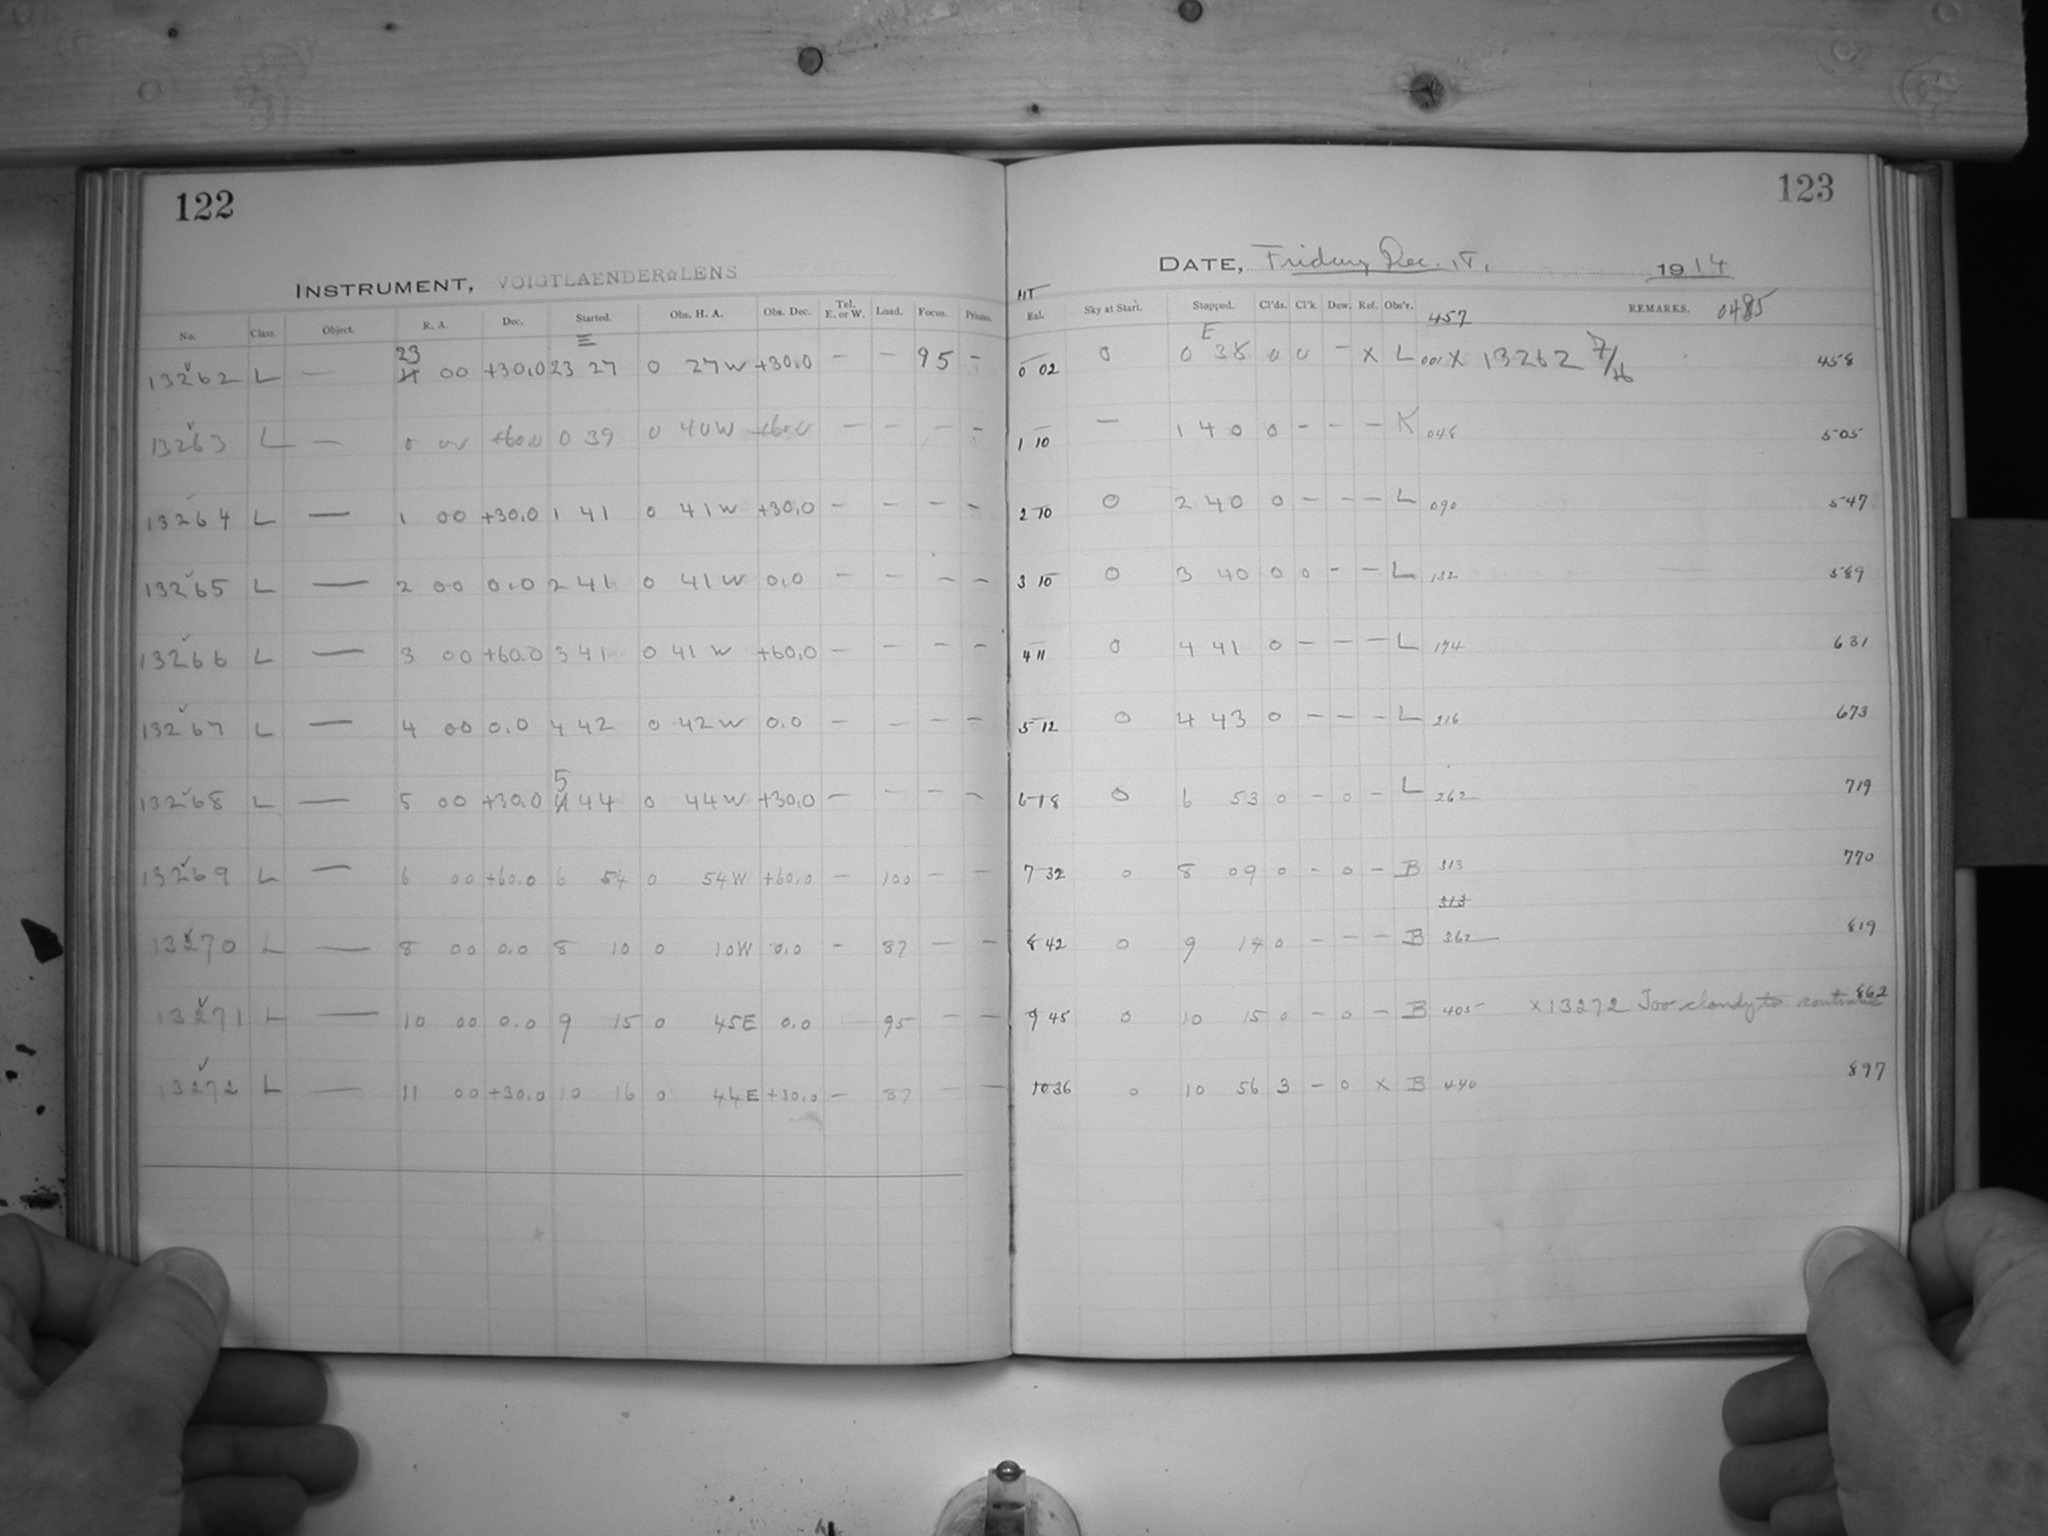 122
INSTRUMENT, VOIGTLAENDER LENS
No. Class. Object. R. A. Dec. Started. Obs. H. A. Obs. Dec. Tel. E. or W. Load. Focus. Prisms.
E
23
13262 L — 00 +30.0 23 27 0 27W +30.0 — — 95 —
13263 L — 0 00 +60.0 0 39 0 40W +60.0 — — — —
13264 L — 1 00 +30.0 1 41 0 41W +30.0 — — — —
13265 L — 2 00 0.0 2 41 0 41W 0.0 — — — —
13266 L — 3 00 +60.0 3 41 0 41W +60.0 — — — —
13267 L — 4 00 0.0 4 42 0 42W 0.0 — — — —
5
13268 L — 5 00 +30.0 44 0 44W +30.0 — — — —
13269 L — 6 00 +60.0 6 54 0 54W +60.0 — 100 — —
13270 L — 8 00 0.0 8 10 0 10W 0.0 — 87 — —
13271 L — 10 00 0.0 9 15 0 45E 0.0 — 95 — —
13272 L — 11 00 +30.0 10 16 0 44E +30.0 — 87 — —
123
DATE, Friday Dec. 1914
Exl. Sky at Start. Stopped. Cl'ds. Cl'k Dew. Ref. Obs'r. 457 REMARKS. 0485
E
0 02 0 0 38 0 0 — X L 001 X 13262 458
1 10 — 1 40 0 — — — K 048 505
2 10 0 2 40 0 — — — L 090 547
3 10 0 3 40 0 0 — — L 132 589
4 11 0 4 41 0 — — — L 174 631
5 12 0 4 43 0 — — — L 216 673
6 18 0 6 53 0 — 0 — L 262 719
7 32 0 8 09 0 — 0 — B 313 770
313
8 42 0 9 14 0 — — — B 362 819
9 45 0 10 15 0 — 0 — B 405 X 13272 Too cloudy to continue 862
10 36 0 10 56 3 — 0 X B 440 897